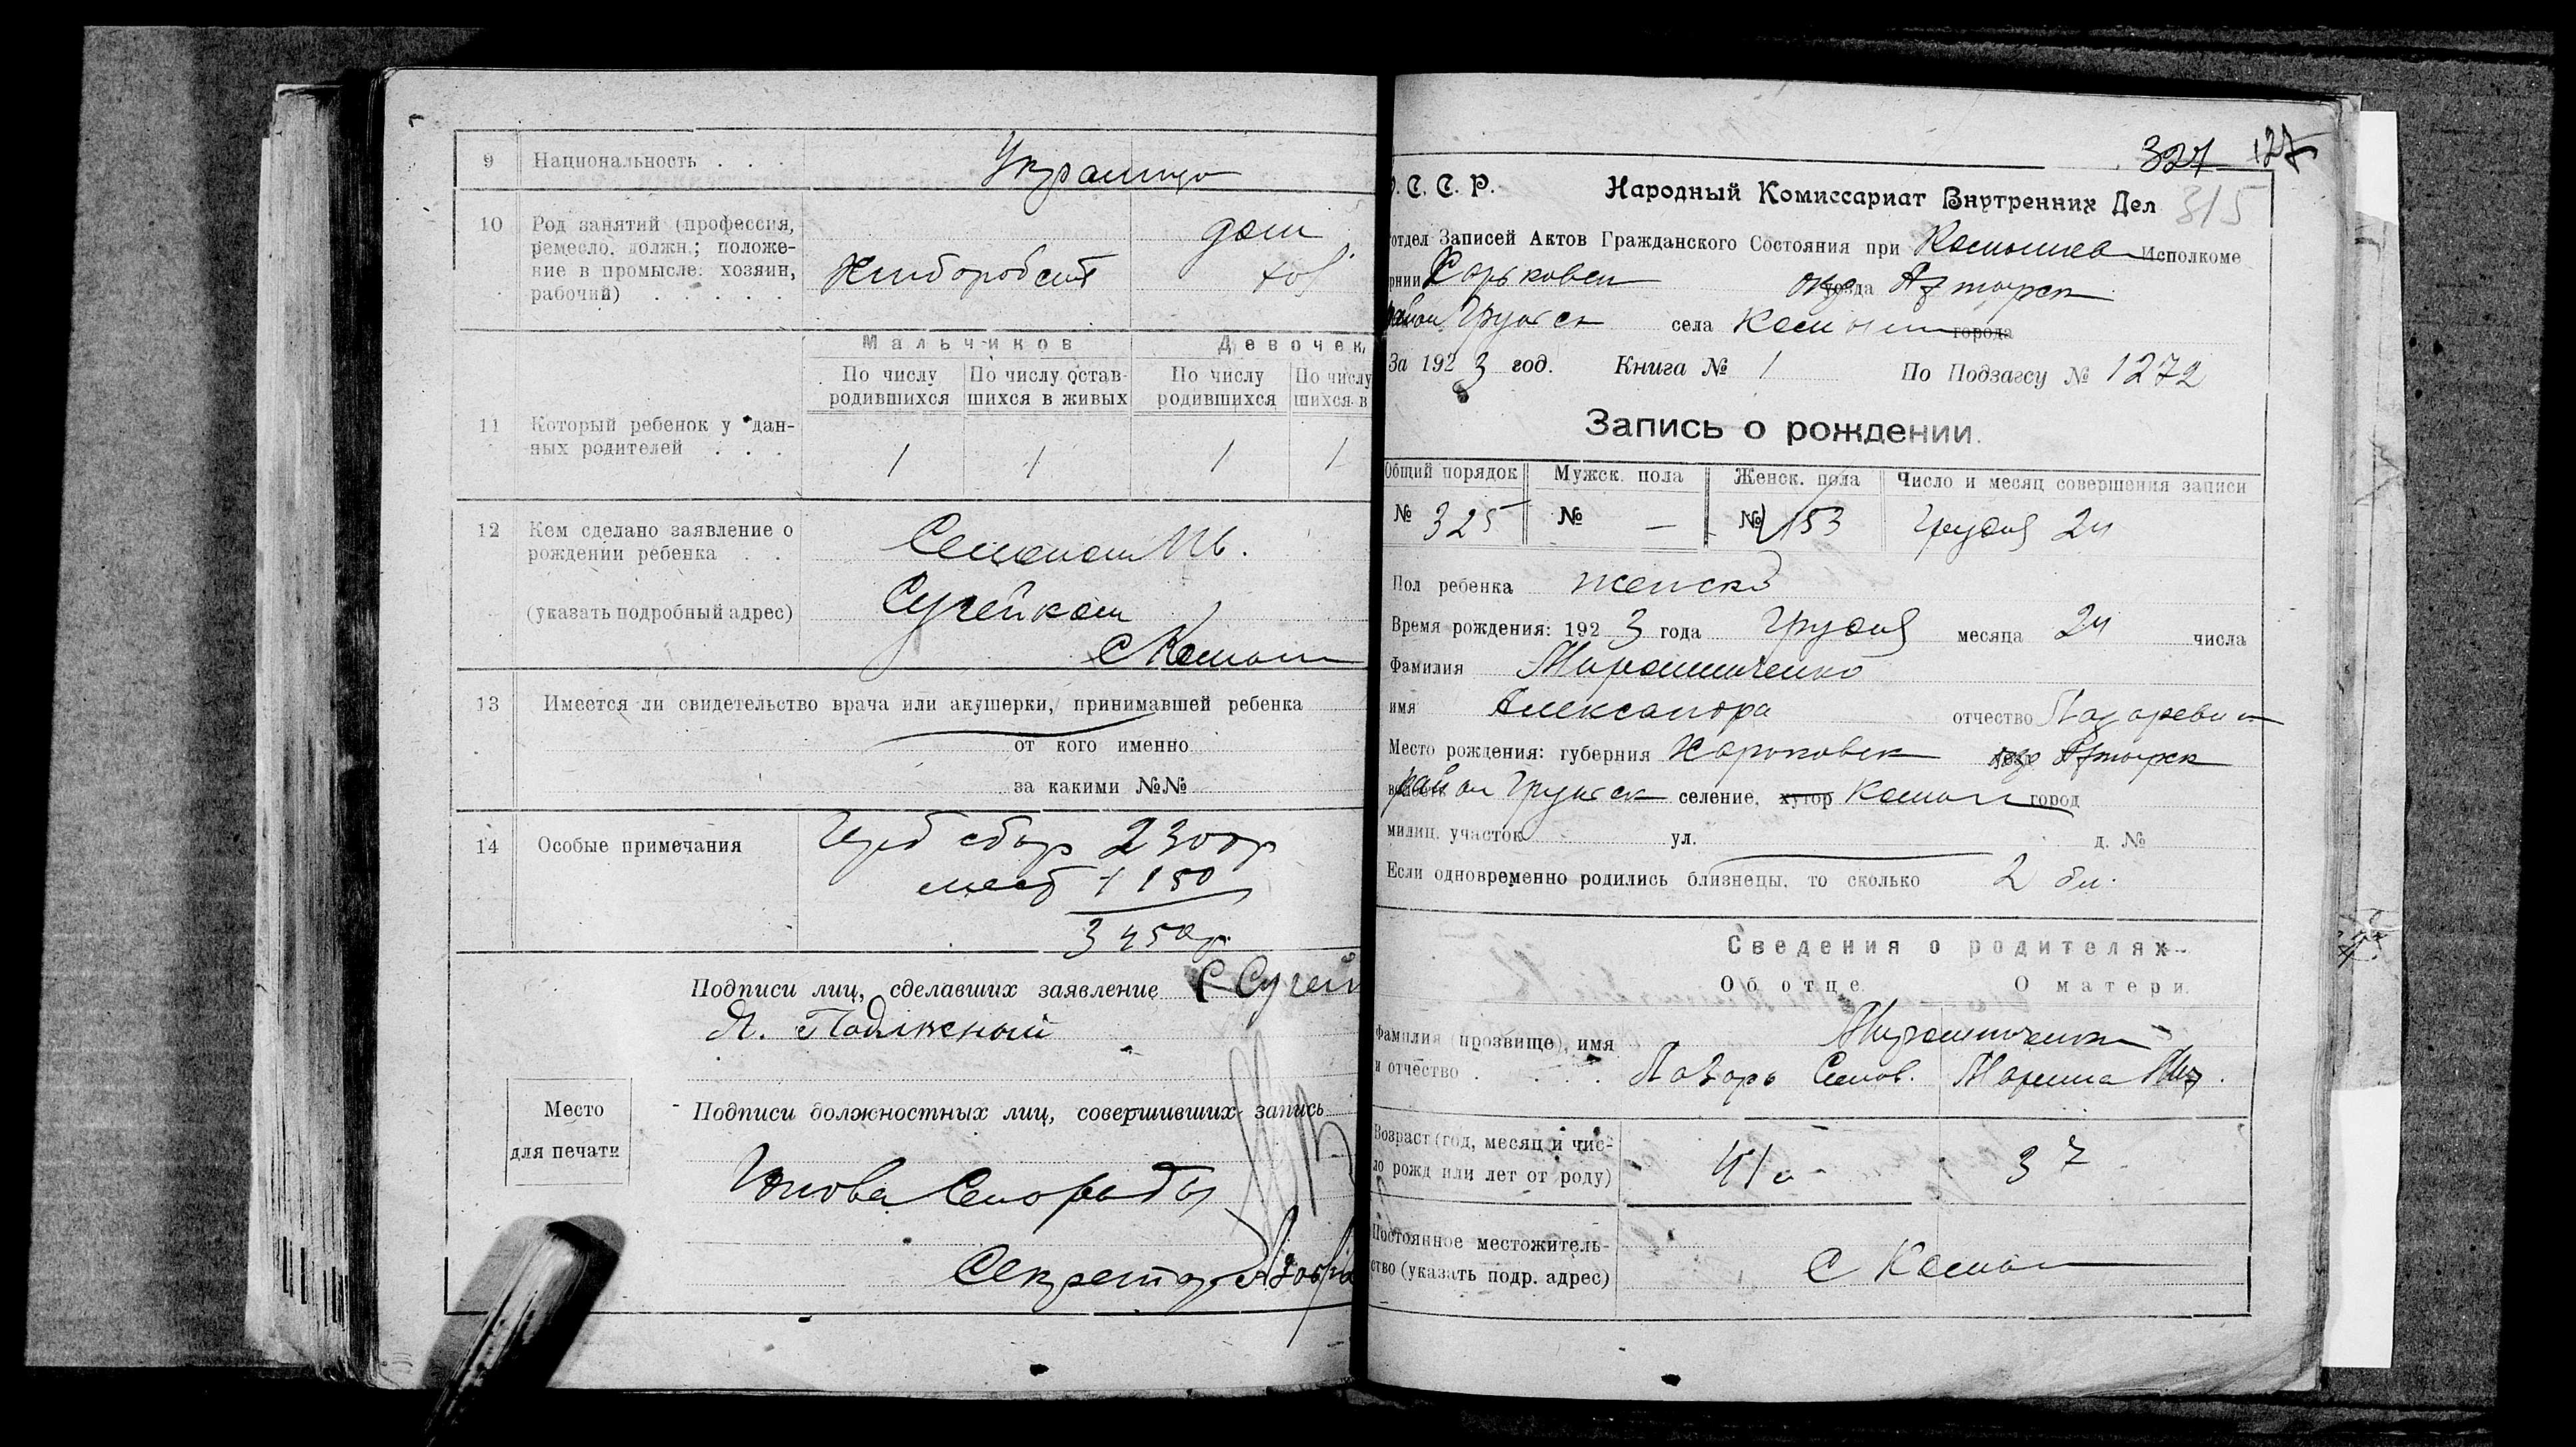 9 Национальность . . .
Украинцы
10 Род занятий (профессия,
ремесло, должн.; положе-
ние в промысле: хозяин,
рабочий) . . . . .
Хлибороб
дом
хоз
Мальчиков
Девочек,
По числу родившихся
По числу остав-шихся в живых
По числу родившихся
По числу
шихся в
11 Который ребенок у дан-
ных родителей . . .
1 1 1 1
12 Кем сделано заявление о
рождении ребенка . .
(указать подробный адрес)
Сугейком
с
13 Имеется ли свидетельство врача или акушерки, принимавшей ребенка
от кого именно
за какими №№
14 Особые примечания
сбор 2300р
1150
3450р
Подписи лиц, сделавших заявление С Сугей
Место
для печати
Подписи должностных лиц, совершивших запись
Голова
Секретар
327 127
315
. С. С. Р. Народный Комиссариат Внутренних Дел
отдел Записей Актов Гражданского Состояния при Исполкоме
рнии Харьковск уезда Ахтырск
район Грунск села города
За 1923 год. Книга № 1 По Подзагсу № 1272
Запись о рождении.
Общий порядок Мужск. пола Женск. пола Число и месяц совершения записи
№ 325 № — № 153 Грудня 24
Пол ребенка женск
Время рождения: 1923 года Грудня месяца 24 числа
Фамилия Мирошниченко
имя Александра отчество Лазаревн
Место рождения: губерния Харьковск окр Ахтырск
район Грунск селение, хутор город
милиц. участок ул. д. №
Если одновременно родились близнецы, то сколько 2 бл.
Сведения о родителях
Об отце. О матери.
Фамилия (прозвище), имя
и отчество . . . .
Мирошниченко
Лазарь Семов. Марина
Возраст (год, месяц и чис-
ло рожд или лет от роду)
41 37
Постоянное местожитель-
ство (указать подр. адрес)
с